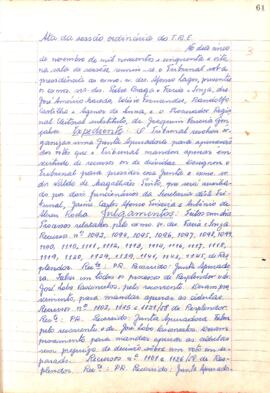 61
Ata da sessão ordinária do T.R.E.
Ao dois anos
de novembro de mil novecentos e cinquenta e oito
na sala de sessões reuniu-se o Tribunal sob a
presidência do exmo. sr. des. Afonso Lages, presentes
o exmo. sr. des. Pedro Braga e Faria e Souza, drs.
José Antônio Fernandes,
Castilho e de Lima, e o Procurador Regio
nal Eleitoral substituto, dr. Joaquim Ferreira Gon
çalves. Expediente: O Tribunal resolveu or
ganizar uma Junta Apuradora para apurar
dos votos que o Tribunal mandou apurar em
virtude de recursos ou de dúvidas. Designou o
Tribunal para presidir essa Junta o exmo. sr.
dr. Valdir de Magalhães Pinto, que será secretaria
do por dois funcionários da Secretaria deste Tri
bunal, Jaime Carlos Afonso Teixeira e Antônio de
Abreu Rocha. Julgamentos: Feitos em dia
Processos relatados pelo exmo. sr. des. Faria e Souza
Recursos nº 1092, 1093, 1095, 1096, 1097, 1098, 1099,
1100, 1110, 1111, 1112, 1113, 1114, 1116, 1117, 1118,
1119, 1120, 1124, 1139, 1141, 1144, 1145, de Res
plendor. Recte: P.R. Recorrido: Junta Apurado
ra. Falou em todos os processos de Resplendor o dr.
José Lobo Vasconcelos, pelo recorrente. Deram pro
vimento, para mandar apurar as cédulas.
Recursos nº 1102, 1115 e 1125/58 de Resplendor.
Recte: P.R. Recorrido: Junta Apuradora. Falou
pelo recorrente o dr. José Lobo Vasconcelos. Deram
provimento para mandar apurar as cédulas
sem prejuízo da decisão sobre um voto em se
parado. Recursos nº 1101 e 1126/58 de Res
plendor. Recte: P.R. Recorrido: Junta Apurado